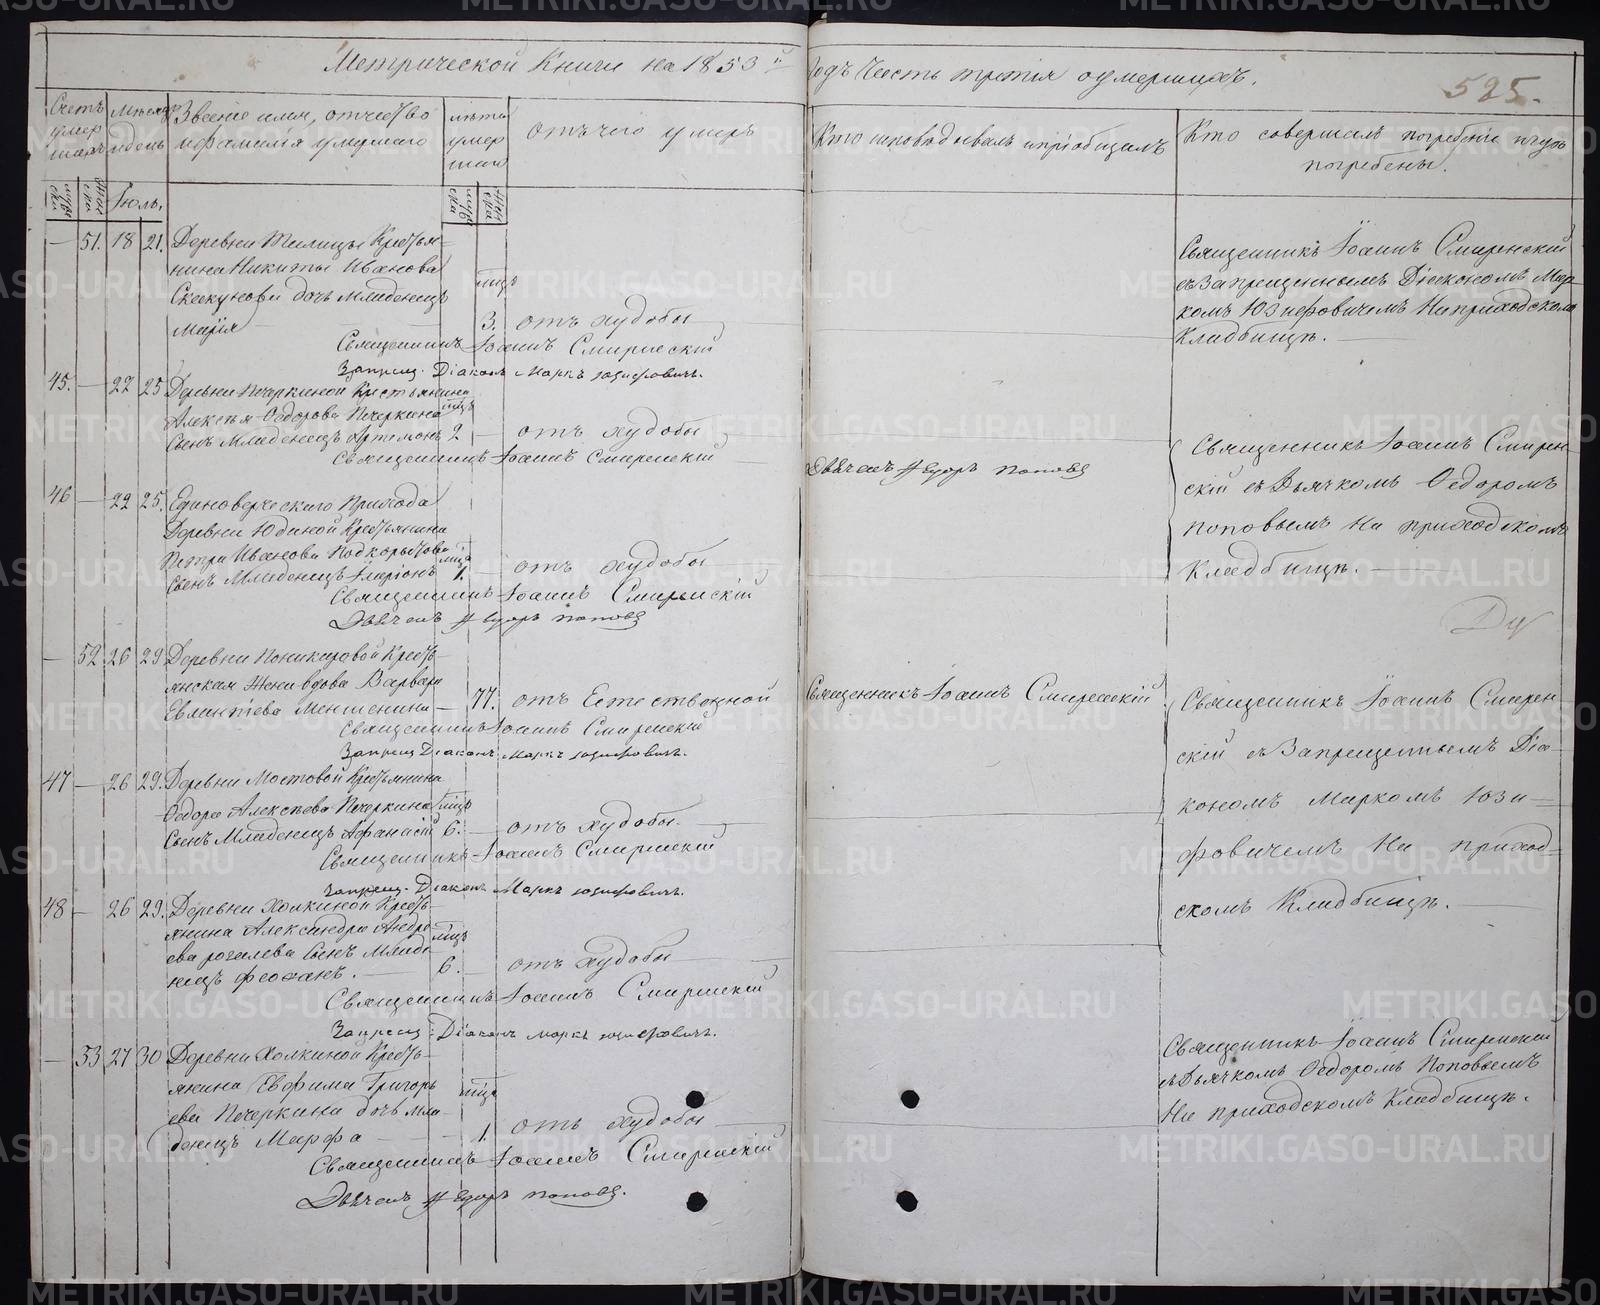 Метрической Книги на 1853 й
Годъ Часть третія о умершихъ.
525.
Счетъ умершихъ
Мѣсяцъ и день
Званіе имя, отчество и фамилія умершаго
лѣта умершаго
отъ чего умеръ
Кто исповѣдывалъ и пріобщалъ
Кто совершалъ погребеніе и гдѣ погребены.
мужеска
женска
Іюль.
мужеска
женска
— 51. 18 21. Деревни Крестья-
нина Никиты Иванова
дочь Младенецъ
Марія
3. отъ худобы
Священникъ Іоаннъ Смиренскій
Запрещ. Діаконъ Маркъ Юзифовичъ.
Священникъ Іоаннъ Смиренскій
съ Запрещеннымъ Діакономъ Мар-
комъ Юзифовичемъ На приходскомъ
Кладбищѣ.
45. — 22 25 Деревни Печеркиной Крестьянина
Алексѣя Ѳедорова Печеркина
Сынъ Младенецъ Артемонъ 2 — отъ худобы
Священникъ Іоаннъ Смиренскій
Дьячекъ Ѳедоръ Поповъ
Священникъ Іоаннъ Смирен-
скій съ Дьячкомъ Ѳедоромъ
Поповымъ На приходскомъ
Кладбищѣ.
46 — 22 25. Единоверческаго Прихода
Деревни Юдиной Крестьянина
Петра Иванова Подкорытова
Сынъ Младенецъ Иларіонъ 1. — отъ худобы
Священникъ Іоаннъ Смиренскій
Дьячекъ Ѳедоръ Поповъ
— 52 26 29 Деревни Кресть-
янская Жена вдова Варвара
Евлантіева Меншенина — 77. отъ Естественной
Священникъ Іоаннъ Смиренскій
Запрещ Діаконъ Маркъ Юзифовичъ.
Священникъ Іоаннъ Смиренскій
Священникъ Іоаннъ Смирен-
скій съ Запрещеннымъ Діа-
кономъ Маркомъ Юзи-
фовичемъ На приход-
скомъ Кладбищѣ.
47 — 26 29. Деревни Мостовой Крестьянина
Ѳедора Алексѣева Печеркина
Сынъ Младенецъ Афанасій 6. — отъ худобы
Священникъ Іоаннъ Смиренскій
Запрещ. Діаконъ Маркъ Юзифовичъ.
48 — 26 29. Деревни Холкиной Кресть-
янина Александра Андре-
ева Рогалева Сынъ Младе-
нецъ Феофанъ. 6. — отъ худобы
Священникъ Іоаннъ Смиренскій
Запрещ: Діаконъ Маркъ Юзифовичъ.
— 53 27 30 Деревни Холкиной Кресть-
янина Евфима Григорь-
ева Печеркина дочь мла-
денецъ Марфа 1. отъ худобы
Священникъ Іоаннъ Смиренскій
Дьячекъ Ѳедоръ Поповъ.
Священникъ Іоаннъ Смиренскій
съ Дьячкомъ Ѳедоромъ Поповымъ
На приходскомъ Кладбищѣ.
METRIKI.GASO-URAL.RU